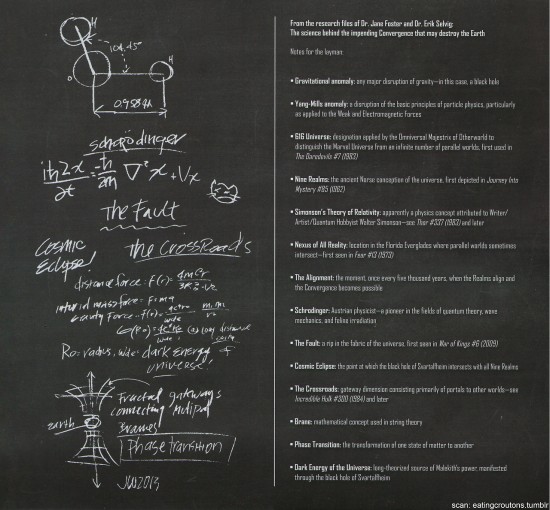 H
104.45°
O
H
0.9584Å
schrödinger
The Fault
Cosmic
Eclipse
The CrossRoads
distance force = f(r) =
Ro = radius, wde = dark Energy of
universe!
Fractal gateways
connecting multiple
Branes
earth
Phase transition
JW2013
From the research files of Dr. Jane Foster and Dr. Erik Selvig:
The science behind the impending Convergence that may destroy the Earth
Notes for the layman:
• Gravitational anomaly: any major disruption of gravity—in this case, a black hole
• Yang-Mills anomaly: a disruption of the basic principles of particle physics, particularly
as applied to the Weak and Electromagnetic forces
• 616 Universe: designation applied by the Omniversal Majestrix of Otherworld to
distinguish the Marvel Universe from an infinite number of parallel worlds, first used in
The Daredevils #7 (1983)
• Nine Realms: the ancient Norse conception of the universe, first depicted in Journey Into
Mystery #85 (1962)
• Simonson's Theory of Relativity: apparently a physics concept attributed to Writer/
Artist/Quantum Hobbyist Walter Simonson—see Thor #337 (1983) and later
• Nexus of All Reality: location in the Florida Everglades where parallel worlds sometimes
intersect—first seen in Fear #13 (1973)
• The Alignment: the moment, once every five thousand years, when the Realms align and
the Convergence becomes possible
• Schrodinger: Austrian physicist—a pioneer in the fields of quantum theory, wave
mechanics, and feline irradiation
• The Fault: a rip in the fabric of the universe, first seen in War of Kings #6 (2009)
• Cosmic Eclipse: the point at which the black hole of Svartalfheim intersects with all Nine Realms
• The Crossroads: gateway dimension consisting primarily of portals to other worlds—see
Incredible Hulk #300 (1984) and later
• Brane: mathematical concept used in string theory
• Phase Transition: the transformation of one state of matter to another
• Dark Energy of the Universe: long-theorized source of Malekith's power, manifested
through the black hole of Svartalfheim
scan: eatingcroutons.tumblr